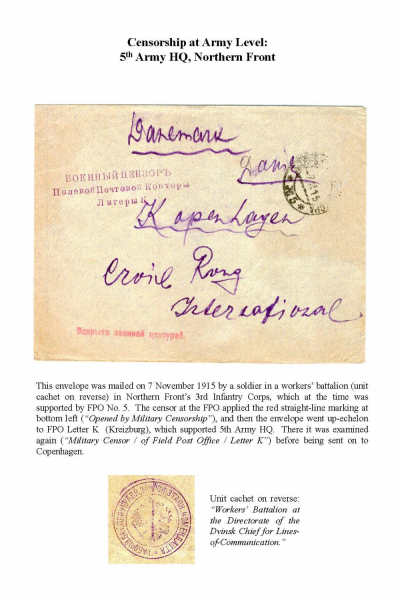 Censorship at Army Level:
5th Army HQ, Northern Front
Danemark
Danie
ВОЕННЫЙ ЦЕНЗОРЪ
Полевой Почтовой Конторы
Литеры К
Kopenhagen
Croix Rong
International
Вскрыто военной цензурой.
This envelope was mailed on 7 November 1915 by a soldier in a workers' battalion (unit
cachet on reverse) in Northern Front's 3rd Infantry Corps, which at the time was
supported by FPO No. 5. The censor at the FPO applied the red straight-line marking at
bottom left ("Opened by Military Censorship"), and then the envelope went up-echelon
to FPO Letter K (Kreizburg), which supported 5th Army HQ. There it was examined
again ("Military Censor / of Field Post Office / Letter K") before being sent on to
Copenhagen.
Unit cachet on reverse:
"Workers' Battalion at
the Directorate of the
Dvinsk Chief for Lines-
of-Communication."